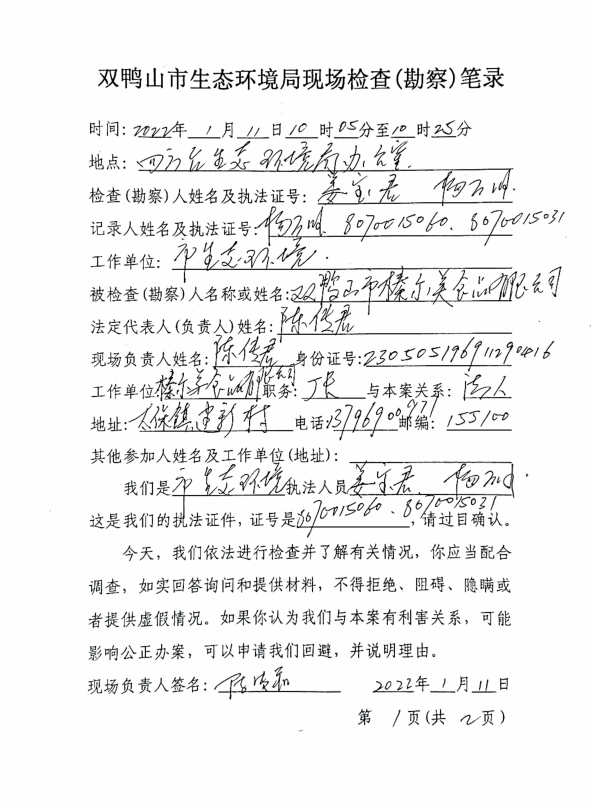 双鸭山市生态环境局现场检查(勘察)笔录
时间:2022年 1 月 11 日 10 时 05分至10 时 25分
地点:四方台生态环境局办公室.
检查(勘察)人姓名及执法证号:姜宝君
记录人姓名及执法证号: 8070015060、8070015031
工作单位:市生态环境.
被检查(勘察)人名称或姓名:双鸭山市榛尔美食品有限公司
法定代表人(负责人)姓名:陈传君
现场负责人姓名:陈传君 身份证号:230505196911290416
工作单位:榛尔美食品有限公司 职务:厂长 与本案关系:法人
地址:太保镇建新村 电话: 邮编:155100
其他参加人姓名及工作单位(地址):
我们是市生态环境执法人员姜宝君、
这是我们的执法证件,证号是8070015060、8070015031,请过目确认。
今天,我们依法进行检查并了解有关情况,你应当配合
调查,如实回答询问和提供材料,不得拒绝、阻碍、隐瞒或
者提供虚假情况。如果你认为我们与本案有利害关系,可能
影响公正办案,可以申请我们回避,并说明理由。
现场负责人签名: 2022年 1 月 11 日
第 1 页(共 2 页)